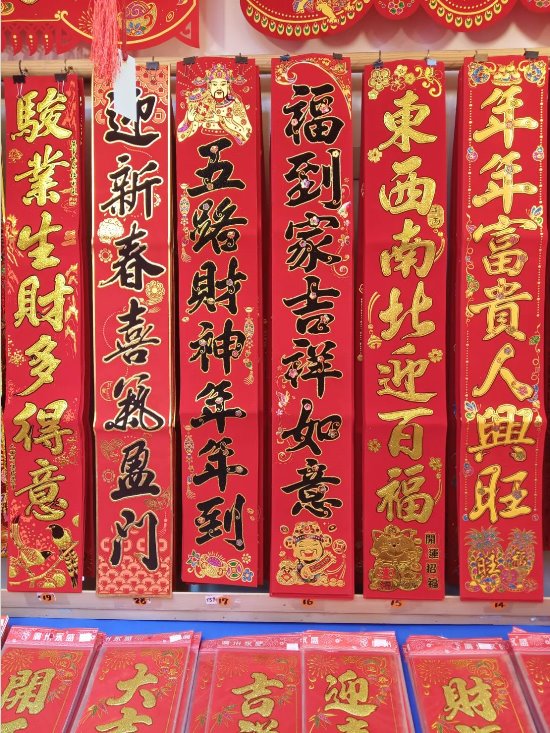 駿業生財多得意
迎新春喜氣盈门
五路財神年年到
福到家吉祥如意
東西南北迎百福
開運招福
年年富貴人興旺
旺
19
28
17
16
15
14
開
大
吉
迎
財